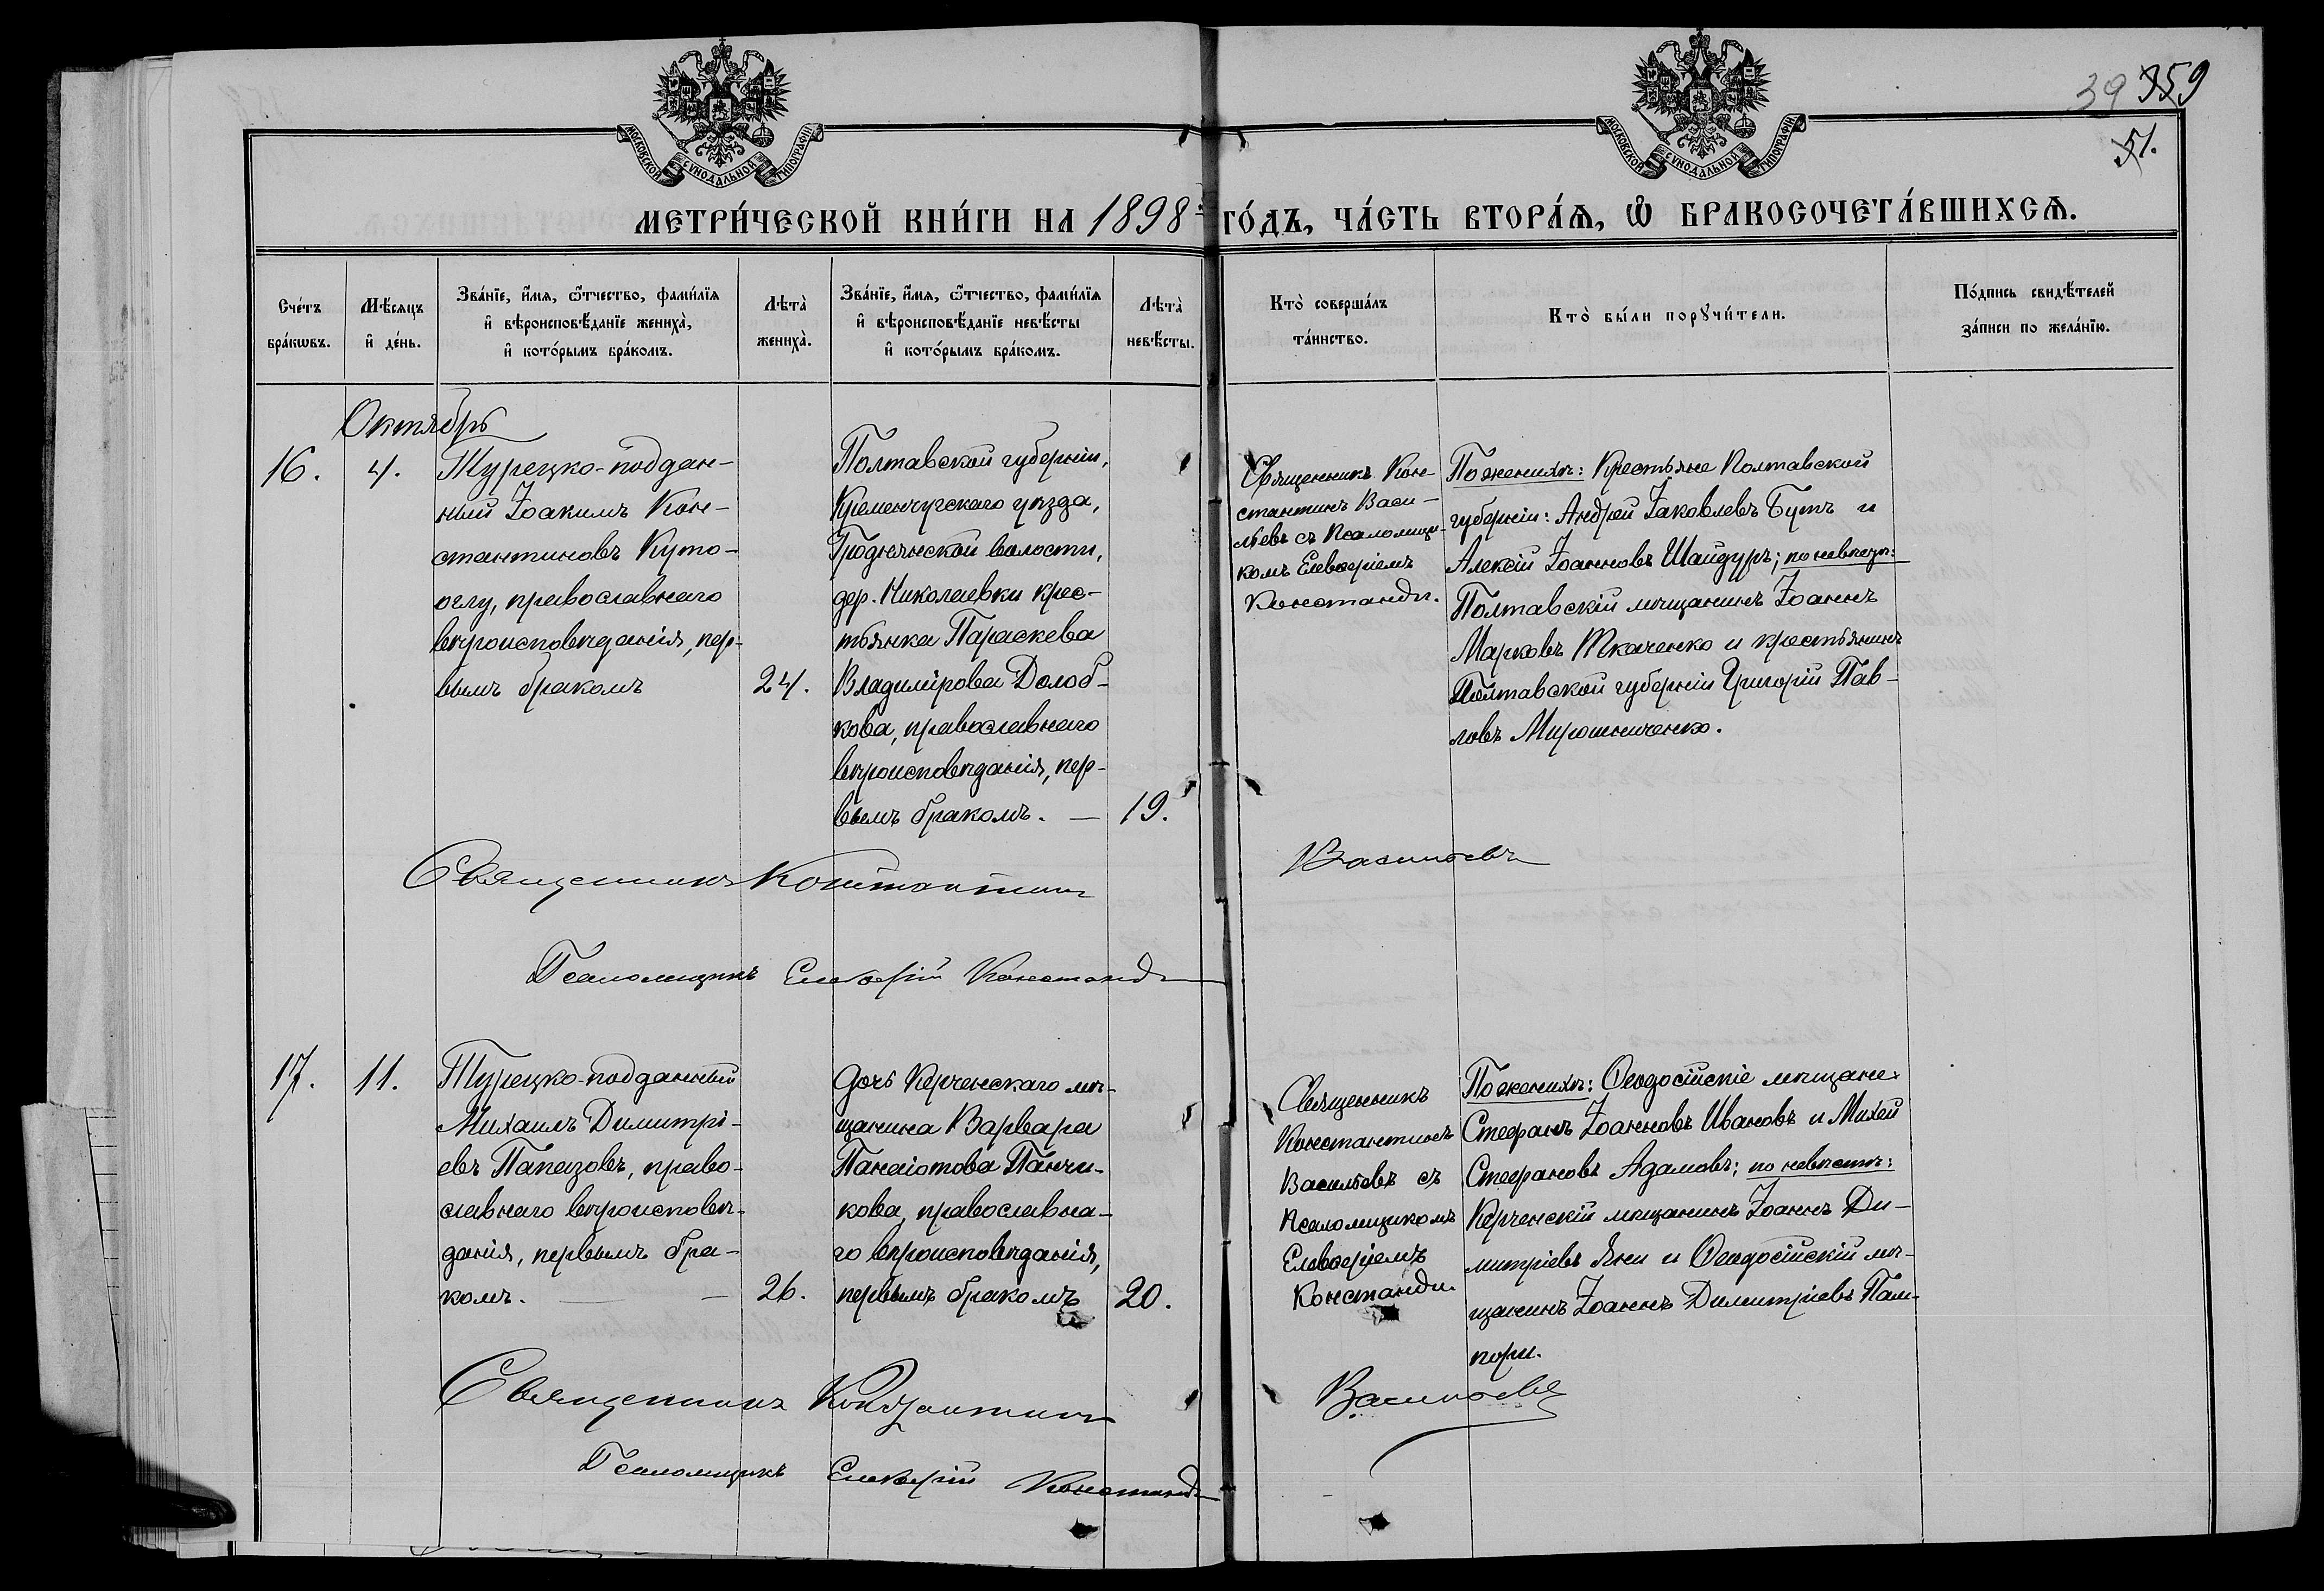 39 359
51.
МОСКОВСКОЙ СѴНОДАЛЬНОЙ ТИПОГРАФІИ
МОСКОВСКОЙ СѴНОДАЛЬНОЙ ТИПОГРАФІИ
МЕТРИ́ЧЕСКОЙ КНИ́ГИ НА 1898 ГО́ДЪ, ЧА́СТЬ ВТОРА́Ѧ, Ѽ БРАКОСОЧЕТА́ВШИХСѦ.
Сче́тъ
бра́кωвъ.
Мѣ́сяцъ
и҆ де́нь.
Зва́нїе, и҆́мѧ, ѻ҆́тчество, фами́лїѧ
и҆ вѣроисповѣ́данїе жениха̀,
и҆ кото́рымъ бра́комъ.
Лѣта̀
жениха̀.
Зва́нїе, и҆́мѧ, ѻ҆́тчество, фами́лїѧ
и҆ вѣроисповѣ́данїе невѣ́сты
и҆ кото́рымъ бра́комъ.
Лѣта̀
невѣ́сты.
Кто̀ соверша́лъ
та́инство.
Кто̀ бы́ли порꙋчи́тели.
По́дпись свидѣ́телей
за́писи по жела́нїю.
Октябрь
16.
4.
Турецко-поддан-
ный Іоакимъ Кон-
стантиновъ Куто-
оглу, православнаго
вѣроисповѣданія, пер-
вымъ бракомъ
24.
Полтавской губерніи,
Кременчугскаго уѣзда,
Гродненской волости,
дер. Николаевки крес-
тьянка Параскева
Владимірова Долоб-
кова, православнаго
вѣроисповѣданія, пер-
вымъ бракомъ. —
19.
Священникъ Кон-
стантинъ Васи-
льевъ съ Псаломщи-
комъ Елевѳеріемъ
Констанди.
По женихѣ: Крестьяне Полтавской
губерніи: Андрей Іаковлевъ Бутъ и
Алексій Іоанновъ Шайдуръ; по невѣстѣ:
Полтавскій мѣщанинъ Іоаннъ
Марковъ Ткаченко и крестьянинъ
Полтавской губерніи Григорій Пав-
ловъ Мирошниченко.
Священникъ Константинъ Васильевъ
Псаломщикъ Елевѳерій Констанди
17.
11.
Турецко-подданный
Михаилъ Димитрі-
евъ Папазовъ, право-
славнаго вѣроисповѣ-
данія, первымъ бра-
комъ. — —
26.
Дочь Керченскаго мѣ-
щанина Варвара
Панаіотова Панчи-
кова, православна-
го вѣроисповѣданія,
первымъ бракомъ
20.
Священникъ
Константинъ
Васильевъ съ
Псаломщикомъ
Елевѳеріемъ
Констанди.
По женихѣ: Ѳеодосійскіе мѣщане:
Стефанъ Іоанновъ Ивановъ и Михей
Стефановъ Адамовъ; по невѣстѣ:
Керченскій мѣщанинъ Іоаннъ Ди-
митріевъ Яни и Ѳеодосійскій мѣ-
щанинъ Іоаннъ Димитріевъ Пам-
пори.
Священникъ Константинъ Васильевъ
Псаломщикъ Елевѳерій Констанди